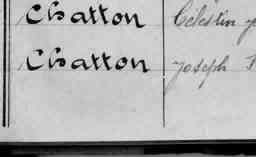 Chatton Célestin
Chatton Joseph